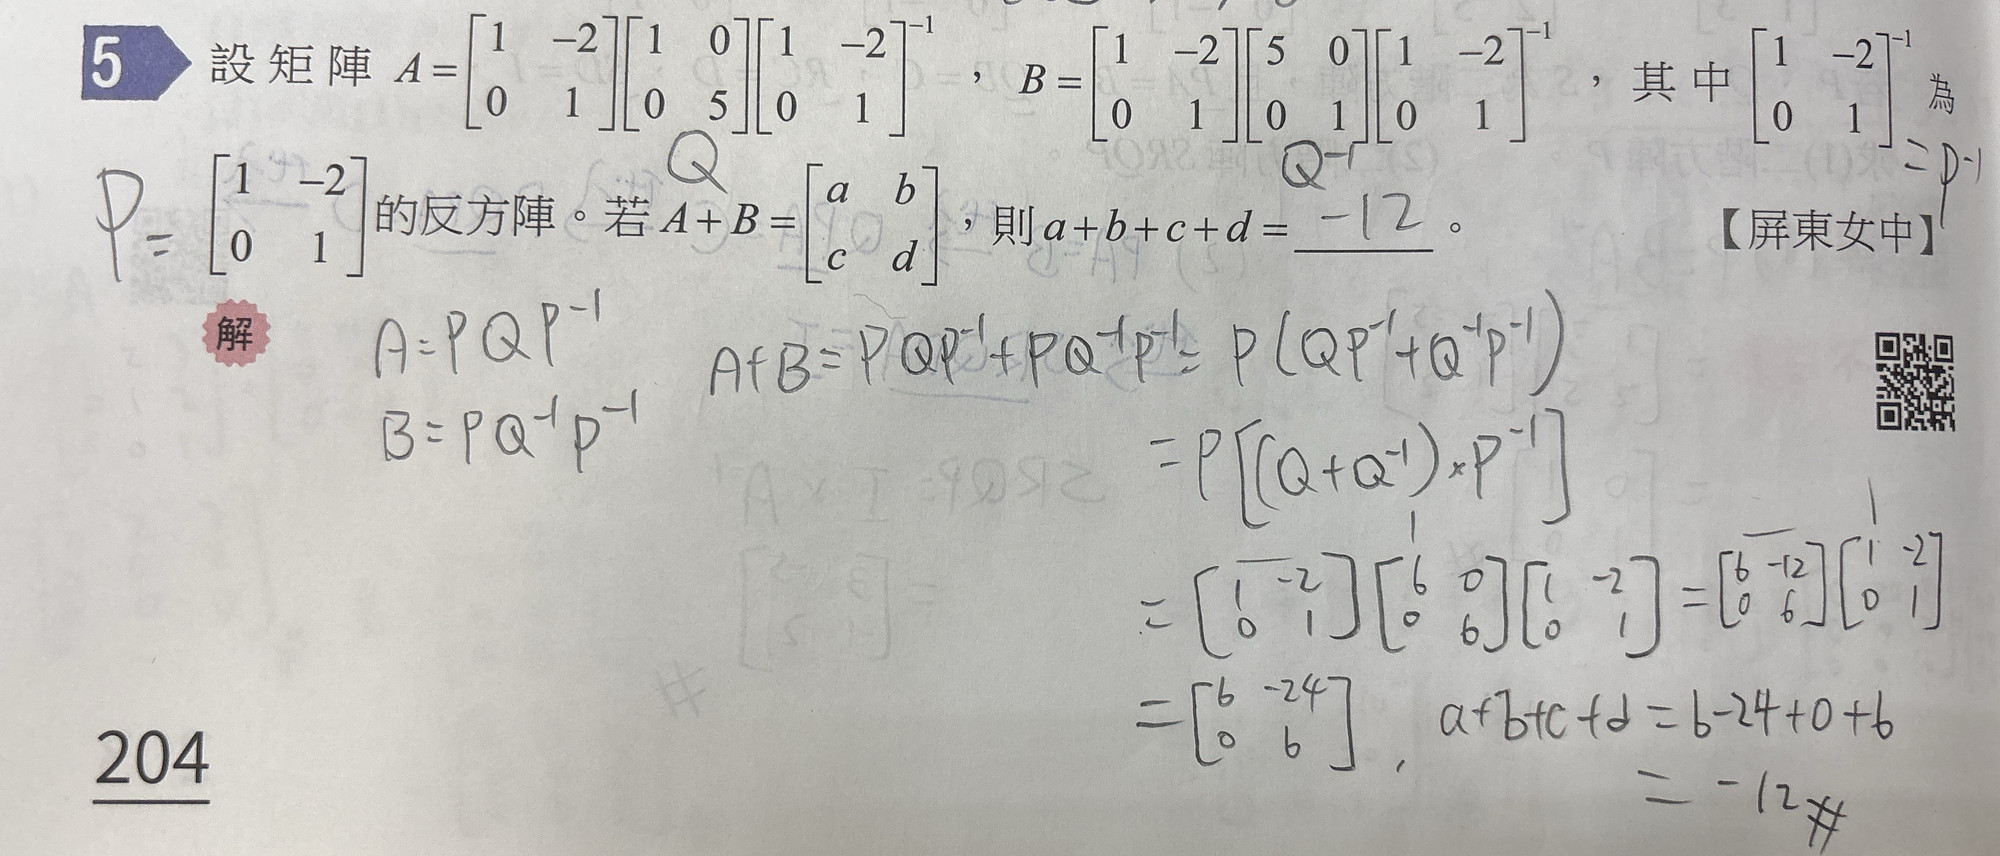 5 設矩陣 A=[1 -2; 0 1][1 0; 0 5][1 -2; 0 1]⁻¹，B=[1 -2; 0 1][5 0; 0 1][1 -2; 0 1]⁻¹，其中[1 -2; 0 1]⁻¹為
Q Q⁻¹ =P⁻¹
P= [1 -2; 0 1]的反方陣。若 A+B=[a b; c d]，則 a+b+c+d= -12 。【屏東女中】
解 A=PQP⁻¹ A+B=PQP⁻¹+PQ⁻¹P⁻¹= P(QP⁻¹+Q⁻¹P⁻¹)
B=PQ⁻¹P⁻¹
=P[(Q+Q⁻¹)×P⁻¹]
=[1 -2; 0 1][6 0; 0 6][1 -2; 0 1]=[6 -12; 0 6][1 -2; 0 1]
=[6 -24; 0 6], a+b+c+d=6-24+0+6
= -12#
204